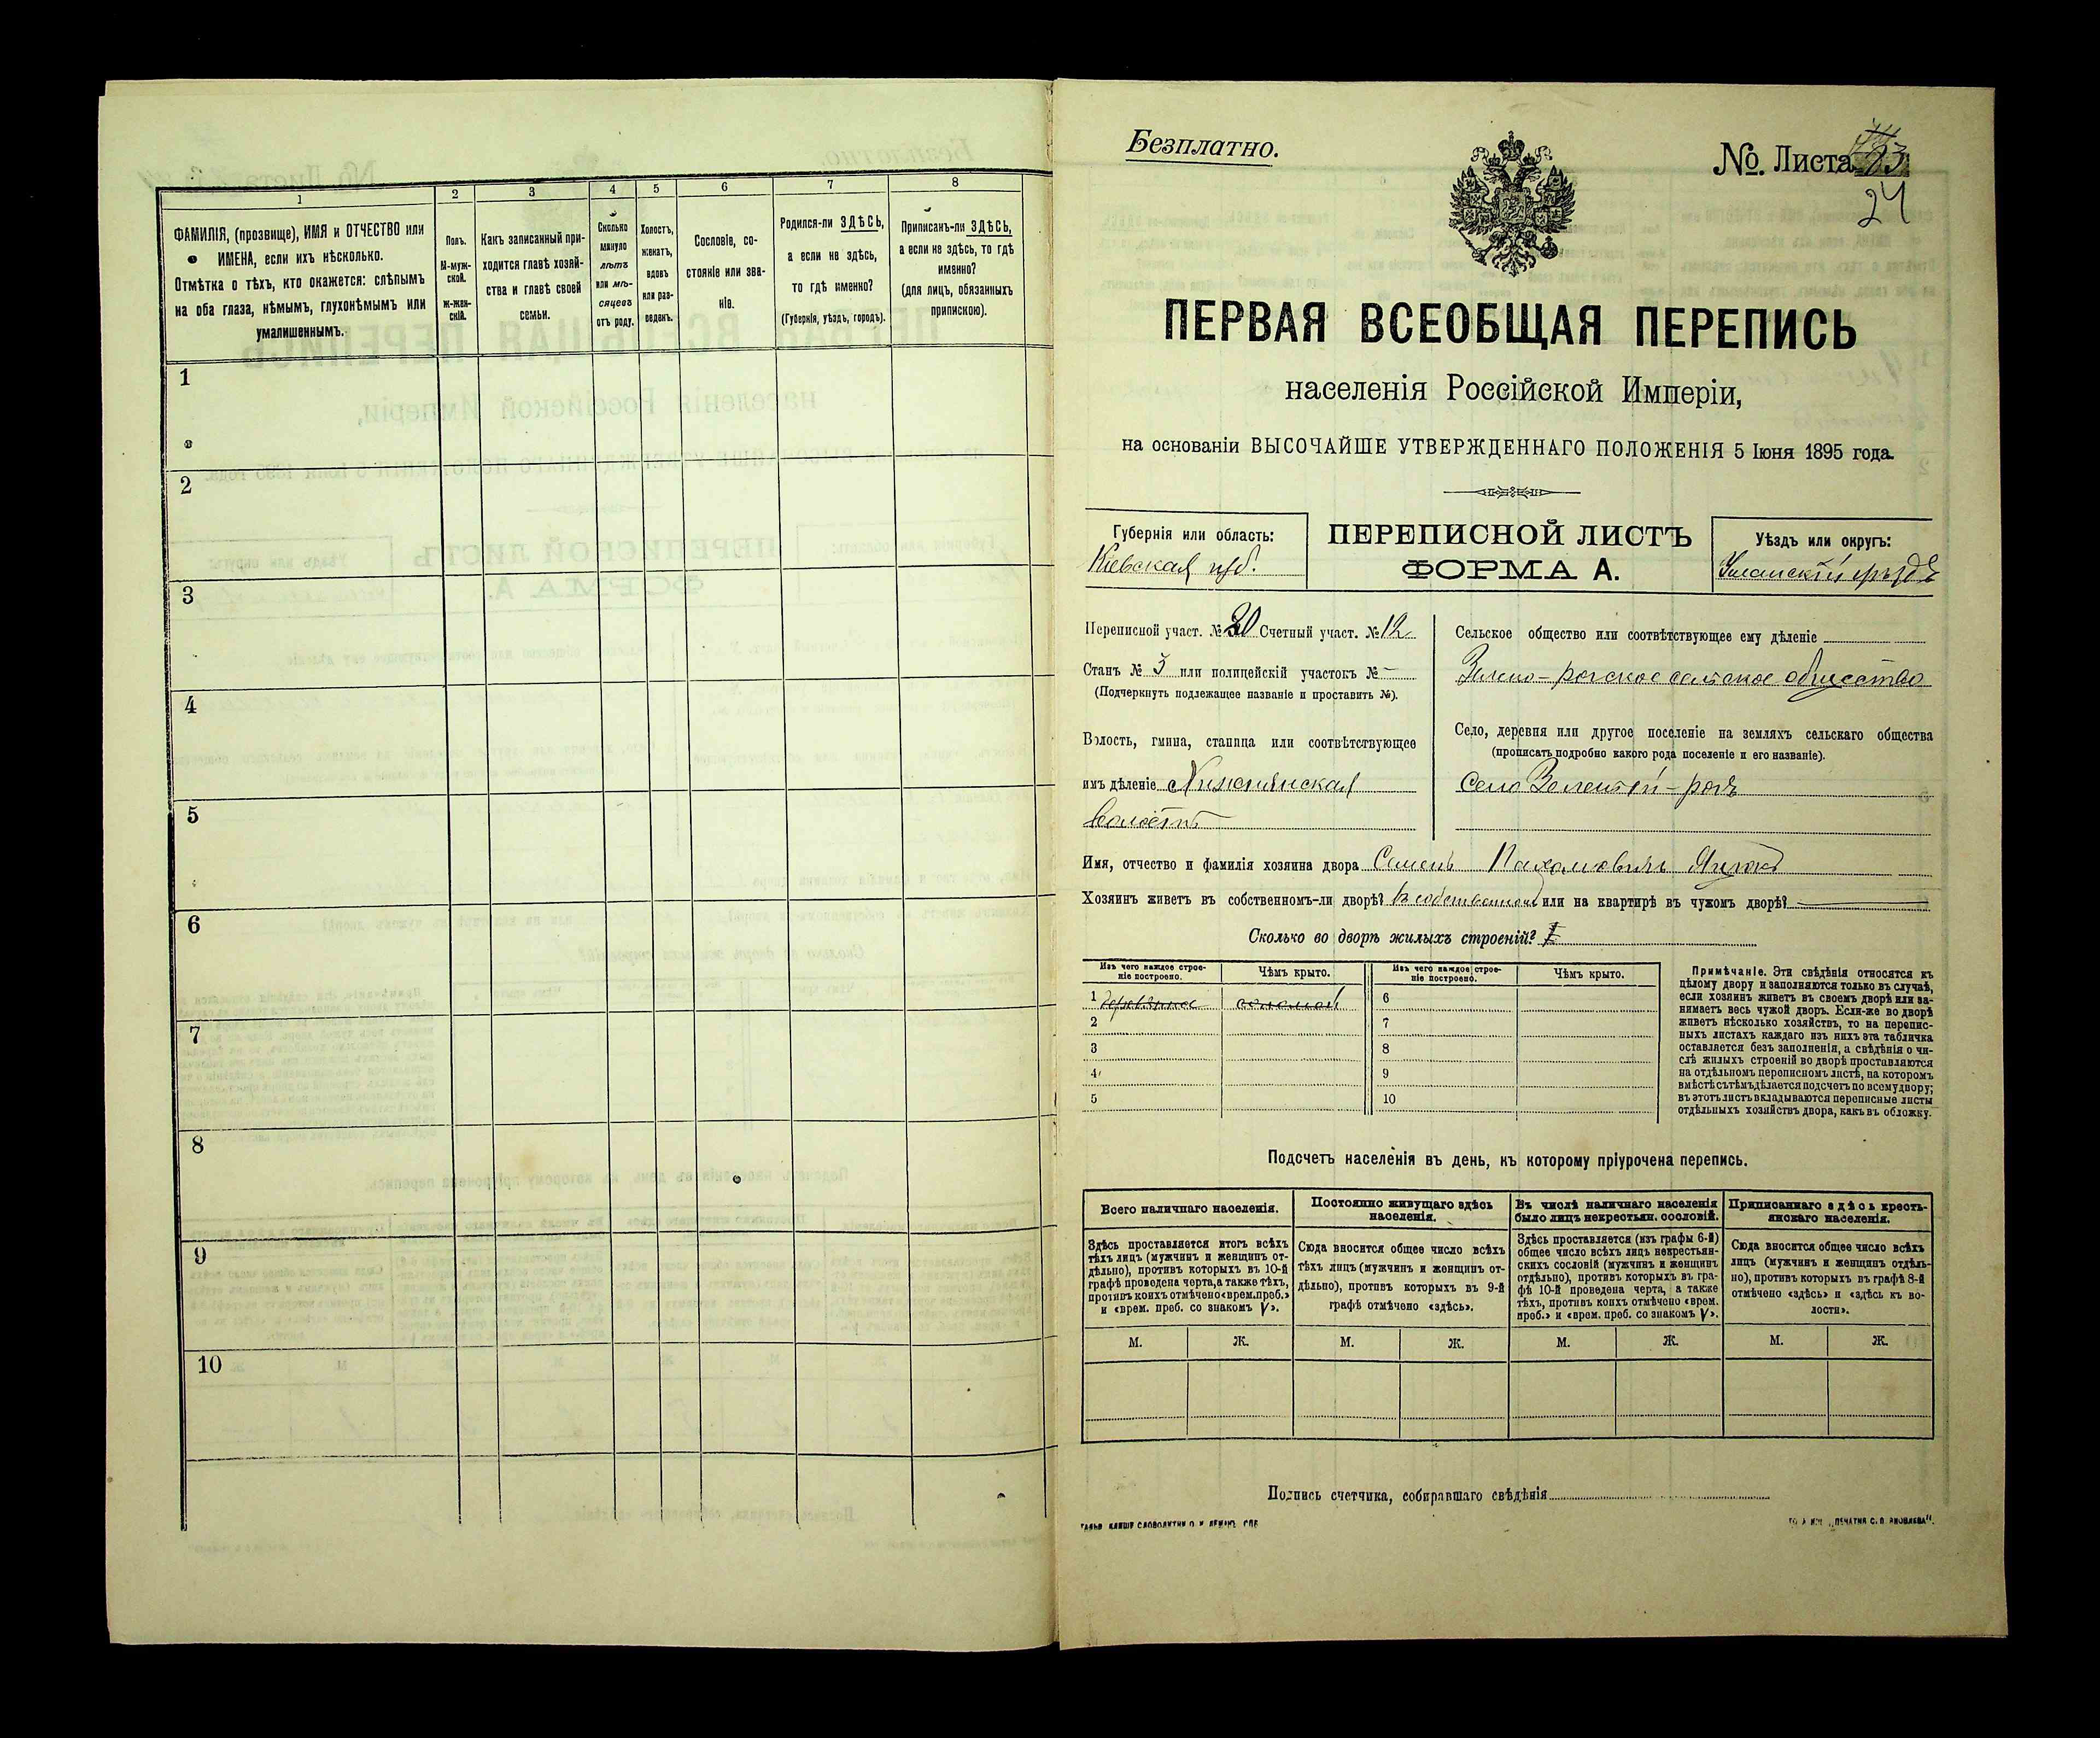 1
2
3
4
5
6
7
8
ФАМИЛІЯ, (прозвище), ИМЯ и ОТЧЕСТВО или
ИМЕНА, если ихъ нѣсколько.
Отмѣтка о тѣхъ, кто окажется: слѣпымъ
на оба глаза, нѣмымъ, глухонѣмымъ или
умалишеннымъ.
Полъ.
М-муж-
ской.
ж-жен-
скій.
Какъ записанный при-
ходится главѣ хозяй-
ства и главѣ своей
семьи.
Сколько
минуло
лѣтъ
или мѣ-
сяцевъ
отъ роду.
Холостъ,
женатъ,
вдовъ
или раз-
веденъ.
Сословіе, со-
стояніе или зва-
ніе.
Родился-ли ЗДѢСЬ,
а если не здѣсь,
то гдѣ именно?
(Губернія, уѣздъ, городъ).
Приписанъ-ли ЗДѢСЬ,
а если не здѣсь, то гдѣ
именно?
(для лицъ, обязанныхъ
припискою).
1
2
3
4
5
6
7
8
9
10
Безплатно.
№. Листа
24
ПЕРВАЯ ВСЕОБЩАЯ ПЕРЕПИСЬ
населенія Россійской Имперіи,
на основаніи ВЫСОЧАЙШЕ УТВЕРЖДЕННАГО ПОЛОЖЕНІЯ 5 Іюня 1895 года.
Губернія или область:
Кіевская губ.
ПЕРЕПИСНОЙ ЛИСТЪ
ФОРМА А.
Уѣздъ или округъ:
Уманскій уѣздъ
Переписной участ. № 20 Счетный участ. № 12
Станъ № 3 или полицейскій участокъ № —
(Подчеркнуть подлежащее названіе и проставить №).
Волость, гмина, станица или соотвѣтствующее
имъ дѣленіе
волость
Сельское общество или соотвѣтствующее ему дѣленіе
Зелено-рогское сельское общество
Село, деревня или другое поселеніе на земляхъ сельскаго общества
(прописать подробно какого рода поселеніе и его названіе).
Село Зеленый-рогъ
Имя, отчество и фамилія хозяина двора Семенъ Пахомовичъ
Хозяинъ живетъ въ собственномъ-ли дворѣ? въ собственномъ или на квартирѣ въ чужомъ дворѣ? —
Сколько во дворѣ жилыхъ строеній? 1
Изъ чего каждое строе-
ніе построено.
Чѣмъ крыто.
Изъ чего каждое строе-
ніе построено.
Чѣмъ крыто.
1 деревянное соломой
2
3
4
5
6
7
8
9
10
Примѣчаніе. Эти свѣдѣнія относятся къ
цѣлому двору и заполняются только въ случаѣ,
если хозяинъ живетъ въ своемъ дворѣ или за-
нимаетъ весь чужой дворъ. Если-же во дворѣ
живетъ нѣсколько хозяйствъ, то на перепис-
ныхъ листахъ каждаго изъ нихъ эта табличка
оставляется безъ заполненія, а свѣдѣнія о чи-
слѣ жилыхъ строеній во дворѣ проставляются
на отдѣльномъ переписномъ листѣ, на которомъ
вмѣстѣ съ тѣмъ дѣлается подсчетъ по всему двору;
въ этотъ листъ вкладываются переписные листы
отдѣльныхъ хозяйствъ двора, какъ въ обложку.
Подсчетъ населенія въ день, къ которому пріурочена перепись.
Всего наличнаго населенія.
Здѣсь проставляется итогъ всѣхъ
тѣхъ лицъ (мужчинъ и женщинъ от-
дѣльно), противъ которыхъ въ 10-й
графѣ проведена черта, а также тѣхъ,
противъ коихъ отмѣчено «врем. преб.»
и «врем. преб. со знакомъ V».
Постоянно живущаго здѣсь
населенія.
Сюда вносится общее число всѣхъ
тѣхъ лицъ (мужчинъ и женщинъ от-
дѣльно), противъ которыхъ въ 9-й
графѣ отмѣчено «здѣсь».
Въ числѣ наличнаго населенія
было лицъ некрестьян. сословій.
Здѣсь проставляется (изъ графы 6-й)
общее число всѣхъ лицъ некрестьян-
скихъ сословій (мужчинъ и женщинъ
отдѣльно), противъ которыхъ въ гра-
фѣ 10-й проведена черта, а также
тѣхъ, противъ коихъ отмѣчено «врем.
преб.» и «врем. преб. со знакомъ V».
Приписаннаго здѣсь кресть-
янскаго населенія.
Сюда вносится общее число всѣхъ
лицъ (мужчинъ и женщинъ отдѣль-
но), противъ которыхъ въ графѣ 8-й
отмѣчено «здѣсь» и «здѣсь къ во-
лости».
М. Ж. М. Ж. М. Ж. М. Ж.
Подпись счетчика, собиравшаго свѣдѣнія